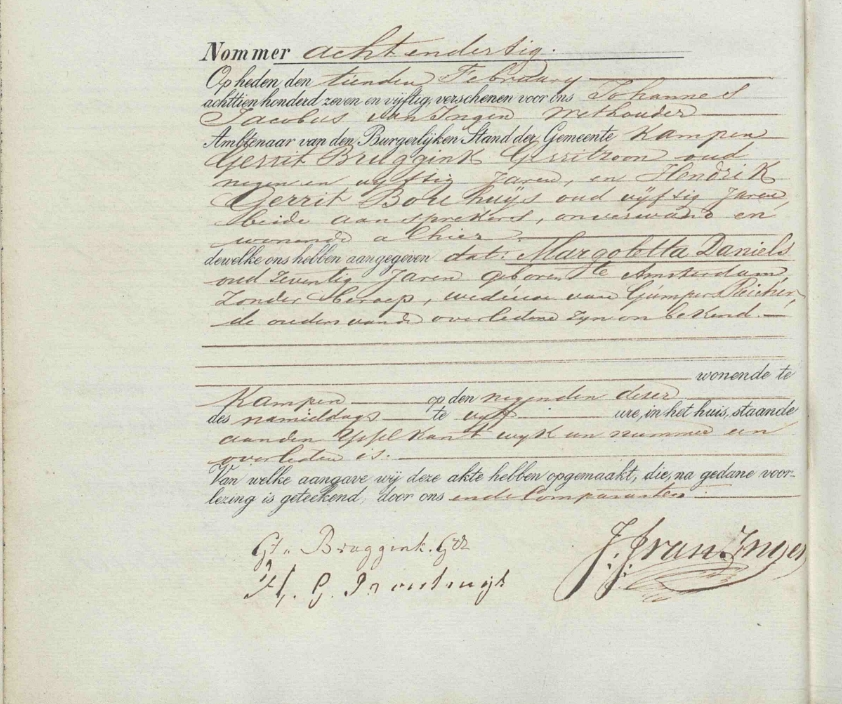 Nommer achtendertig.
Op heden den tienden February
achttien honderd zeven en vijftig, verschenen voor ons Johannes
Jacobus van Ingen Wethouder
Ambtenaar van den Burgerlijken Stand der Gemeente Kampen
Gerrit Bruggink Gerritzoon oud
negen en vijftig Jaren, en Hendrik
Gerrit oud vijftig Jaren
beide aansprekers, onverwand en
wonende alhier
dewelke ons hebben aangegeven dat: Margoletta Daniels
oud zeventig Jaren geboren te Amsterdam,
Zonder beroep, weduwe van Gumper
de ouders van de overledene zyn onbekend.
wonende te
Kampen op den negenden dezer
des namiddags te vyf ure, in het huis, staande
aan den Yssel kant wyk een nummer een
overleden is.
Van welke aangave wij deze akte hebben opgemaakt, die, na gedane voor-
lezing is geteekend, door ons en de Comparanten
Gt. Bruggink. Gzn
H. G.
J. J. van Ingen